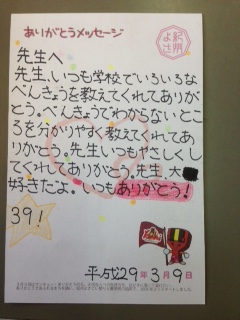 ありがとうメッセージ
先生へ
先生、いつも学校でいろいろな
べんきょうを教えてくれてありが
とう。べんきょうでわからないとこ
ろを分かりやすく教えてくれてあ
りがとう。先生いつもやさしくし
てくれてありがとう。先生、大
好きだよ。いつもありがとう!
39!
平成29年3月9日